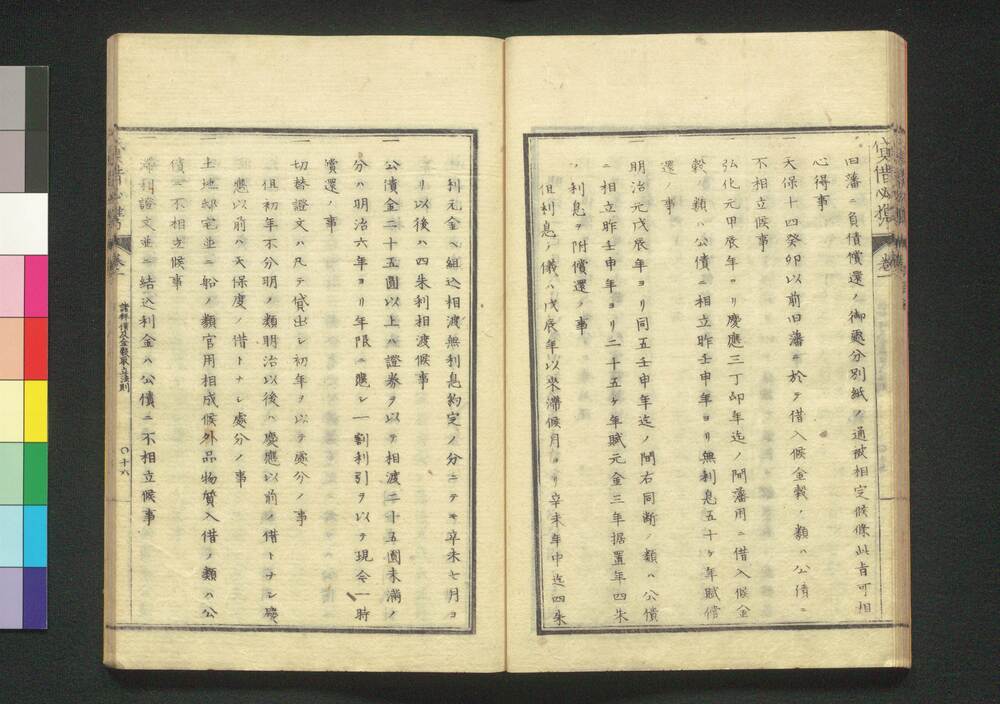 貸借必携
巻
一旧藩々負債償還ノ御處分別紙ノ通被相定候條此旨可相
心得事
一天保十四癸卯以前旧藩ニ於テ借入候金穀ノ類ハ公債ニ
不相立候事
一弘化元甲辰年ヨリ慶應三丁卯年迄ノ間藩用ニ借入候金
穀ノ類ハ公債ニ相立昨壬申年ヨリ無利息五十ヶ年賦償
還ノ事
一明治元戊辰年ヨリ同五壬申年迄ノ間右同断ノ類ハ公債
ニ相立昨壬申年ヨリ二十五ヶ年賦元金三年据置年四朱
ノ利息ヲ附償還ノ事
但利息ノ儀ハ戊辰年以來滞候月ヨリ辛未年中迄四朱
利元金ヘ組込相渡無利息約定ノ分ニテモ辛未七月ヨ
リ以後ハ四朱利相渡候事
一公債金二十五圓以上ハ證券ヲ以テ相渡二十五圓未満ノ
分ハ明治六年ヨリ年限ニ應シ一割利引ヲ以テ現金一時
償還ノ事
一切替證文ハ凡テ貸出シ初年ヲ以テ處分ノ事
但初年不分明ノ類明治以後ハ慶應以前ノ借トナシ慶
應以前ハ天保度ノ借トナシ處分ノ事
一土地邸宅並ニ船ノ類官用相成候外品物質入借ノ類ハ公
債ニ不相立候事
一滞利證文並ニ結込利金ハ公債ニ不相立候事
〇十六